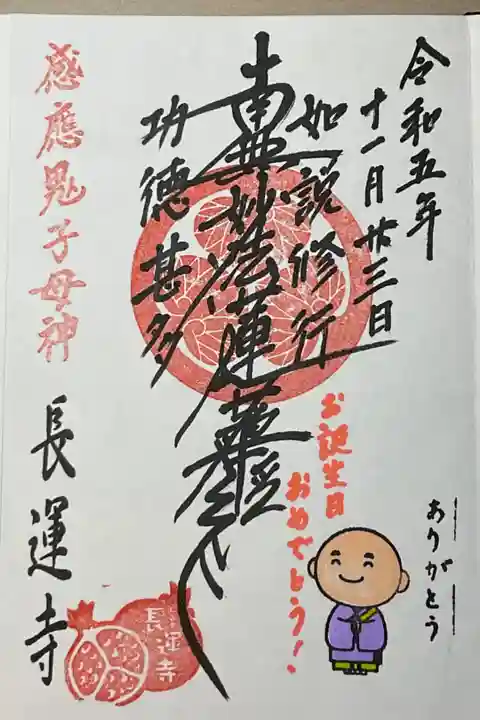 令和五年
十一月廿三日
如説修行
南無妙法蓮華経
功徳甚多
感應鬼子母神
長運寺
長運寺
お誕生日
おめでとう!
ありがとう